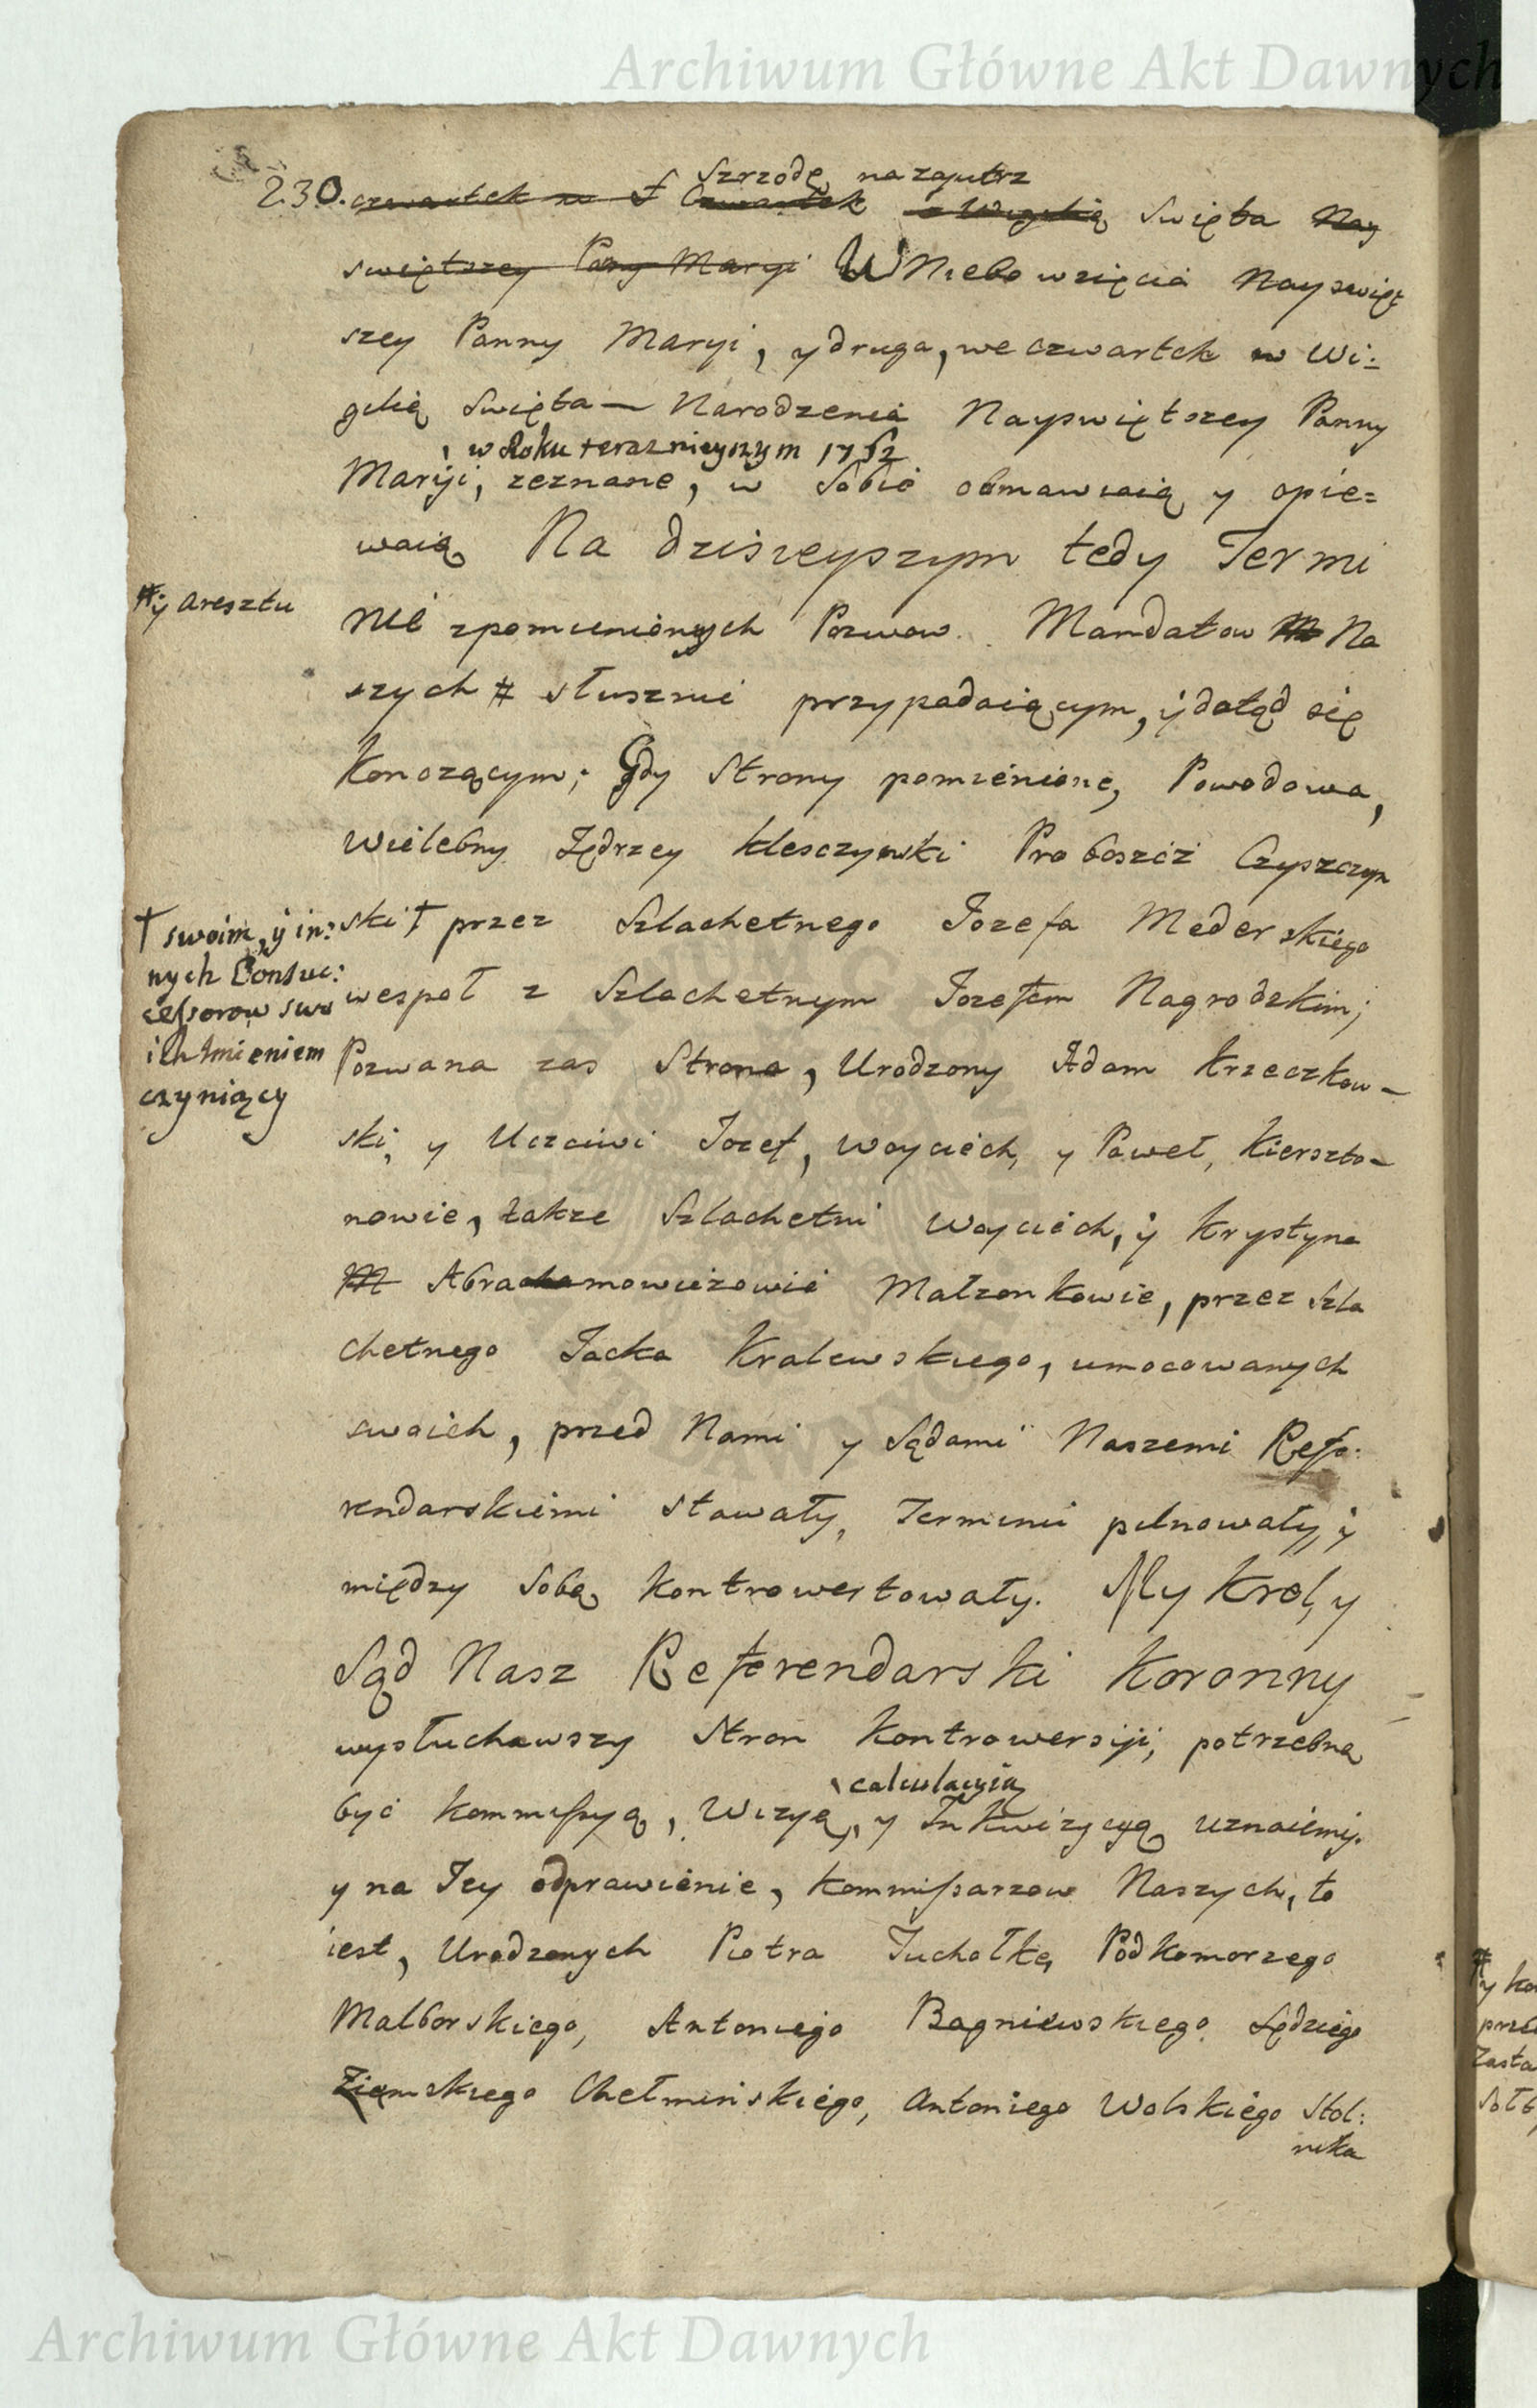 Archiwum Główne Akt Dawnych
Szrzodę nazajutrz
230. czwartek w Czwartek w Wigilią Swięta Nay
swiętszey Panny Maryi W Niebo wzięcia Nayswięt
szey Panny Maryi, y druga, we czwartek w Wi:
gilią Swięta Narodzenia Nayswiętszey Panny
w Roku teraznieyszym 1752
Maryi, zeznane, w Sobie obmawiaią y opie=
waią Na dzisieyszym tedy Termi
# y aresztu
nie zpomnionych Pozwow Mandatow Na
szych # słusznie przypadaiącym, y dotąd się
Konczącym; Gdy Strony pomienione, Powodowa,
Wielebny Jędrzey Klesczynski Proboszcz Czyszczyn
ski † przez Szlachetnego Jozefa Mederskiego
† swoim, y in:
nych Consuc:
cessorow swo
ich Imieniem
czyniący
wespoł z Szlachetnym Jozefem Nagrodzkim;
Pozwana zas Strona, Urodzony Adam Krzeczkow-
ski, y Uczciwi Jozef, Woyciech, y Paweł, Kierszto-
nowie, także Szlachetni Woyciech, y Krystyna
Abrahamowiczowie Małzonkowie, przez Szla
chetnego Jacka Kralewskiego, umocowanych
swoich, przed Nami y Sądami Naszemi Refe:
rendarskiemi stawały, Terminu pilnowały, y
między Sobą kontrowertowały. My Krol, y
Sąd Nasz Referendarski Koronny
wysłuchawszy Stron Kontrowersyi, potrzebną
calculacyią
być Kommissyą, Wizyą, y Inkwizycyą uznaiemy.
y na Jey odprawienie, Kommissarzow Naszych, to
iest, Urodzonych Piotra Juchołkę Podkomorzego
Malborskiego, Antoniego Bagniewskiego Sędziego
Ziemskiego Chełminskiego, Antoniego Wolskiego Stol:
nika
# y ko
prze
Zasta
Sołt
Archiwum Główne Akt Dawnych